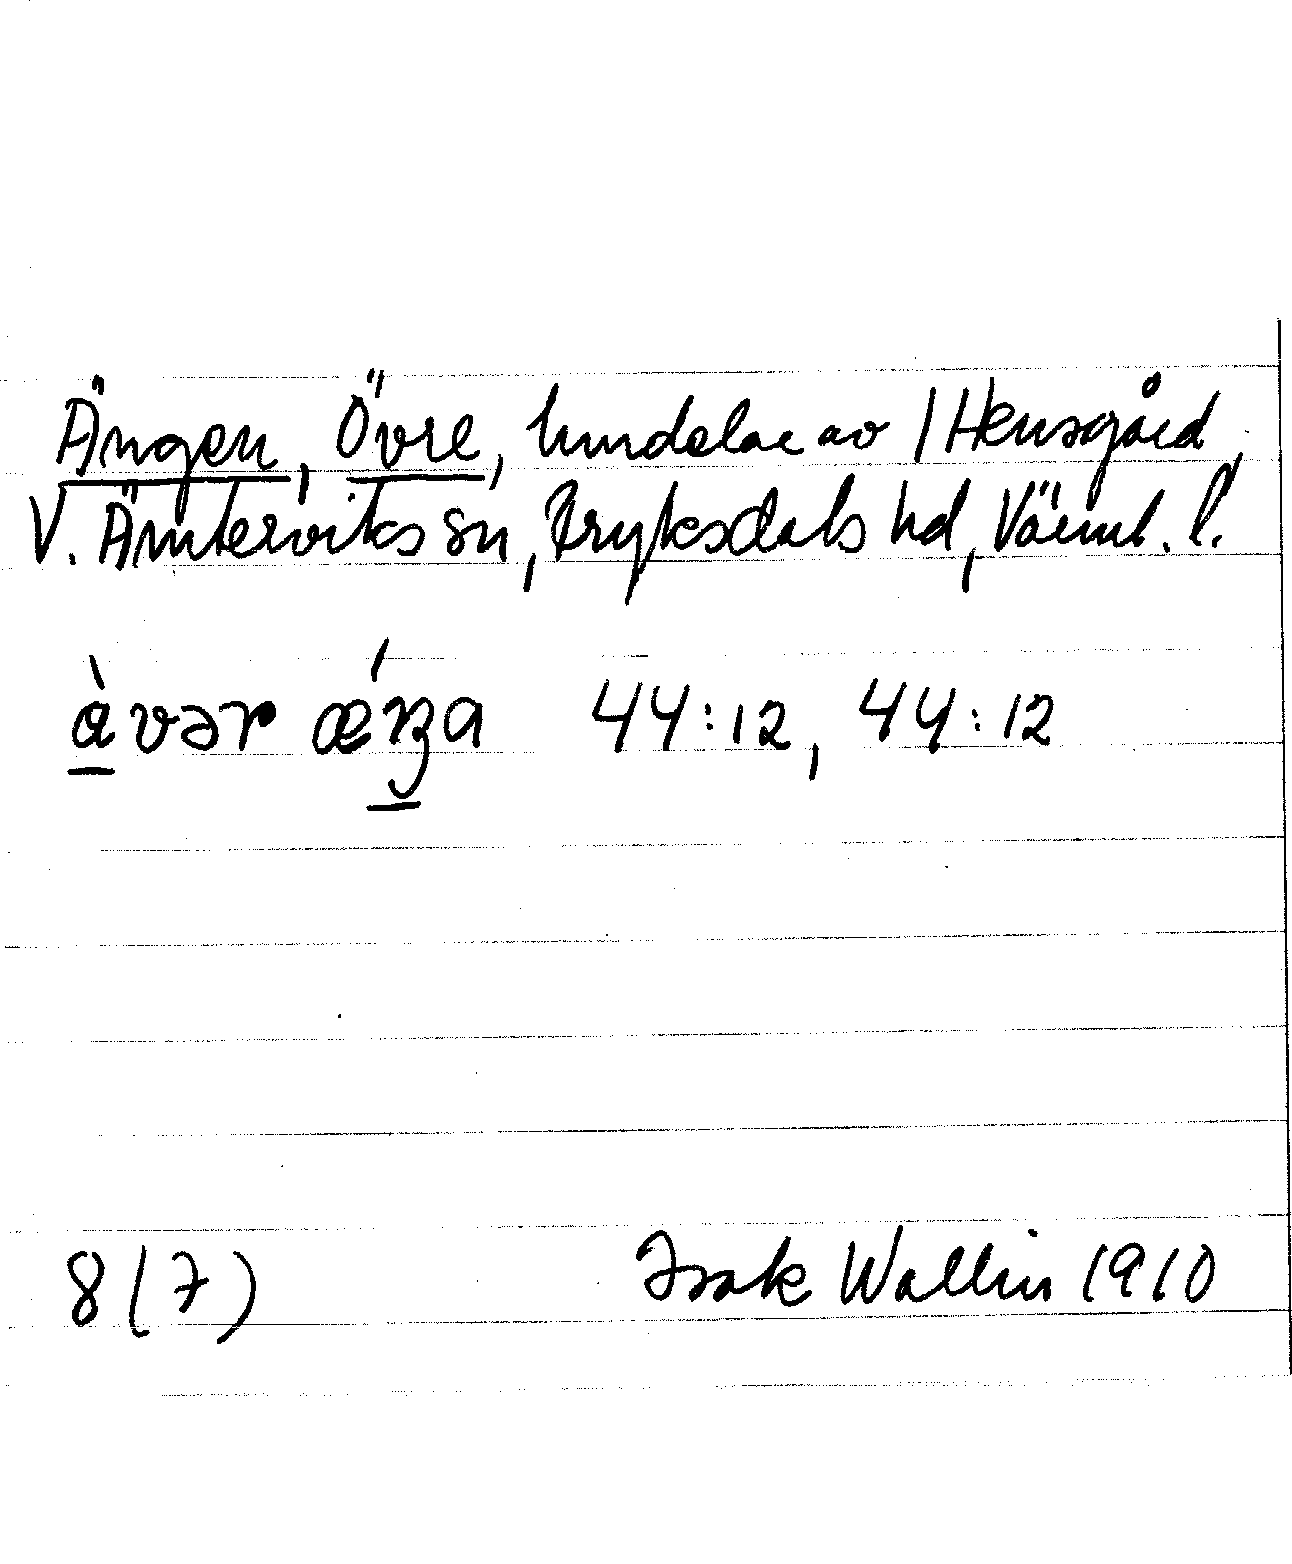 Ängen, Övre, hmdelar av 1 Hensgård,
V. Ämterviks sn, Fryksdals hd, Värml. l.
àvər ǽŋa 44:12, 44:12
8(7) Isak Wallin 1910